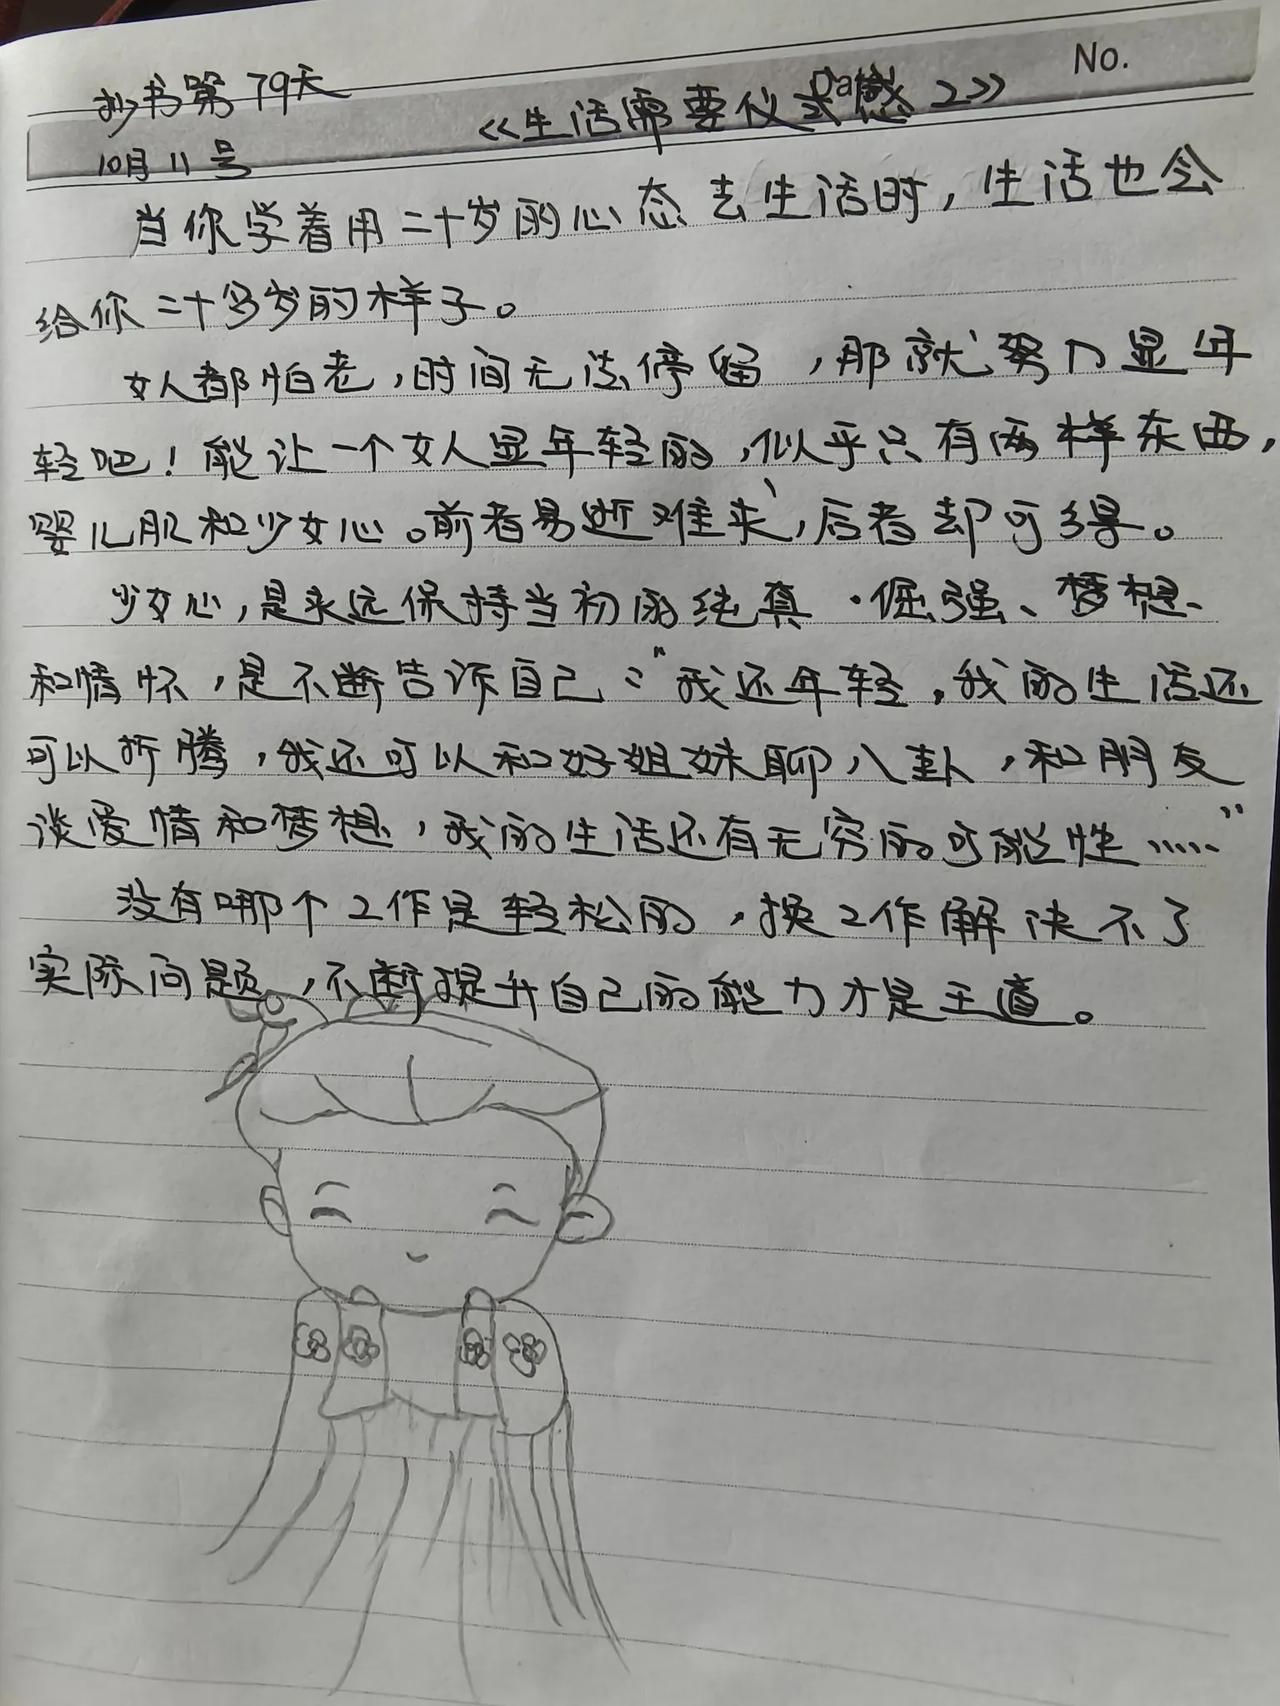 No.
抄书第79天
《生活需要仪式感2》
10月11号
当你学着用二十岁的心态去生活时，生活也会
给你二十多岁的样子。
女人都怕老，时间无法停留，那就努力显年
轻吧！能让一个女人显年轻的，似乎只有两样东西，
婴儿肌和少女心。前者易逝难来，后者却可得。
少女心，是永远保持当初的纯真、倔强、梦想
和情怀，是不断告诉自己："我还年轻，我的生活还
可以折腾，我还可以和好姐妹聊八卦，和朋友
谈爱情和梦想，我的生活还有无穷的可能性……"
没有哪个工作是轻松的，换工作解决不了
实际问题，不断提升自己的能力才是王道。